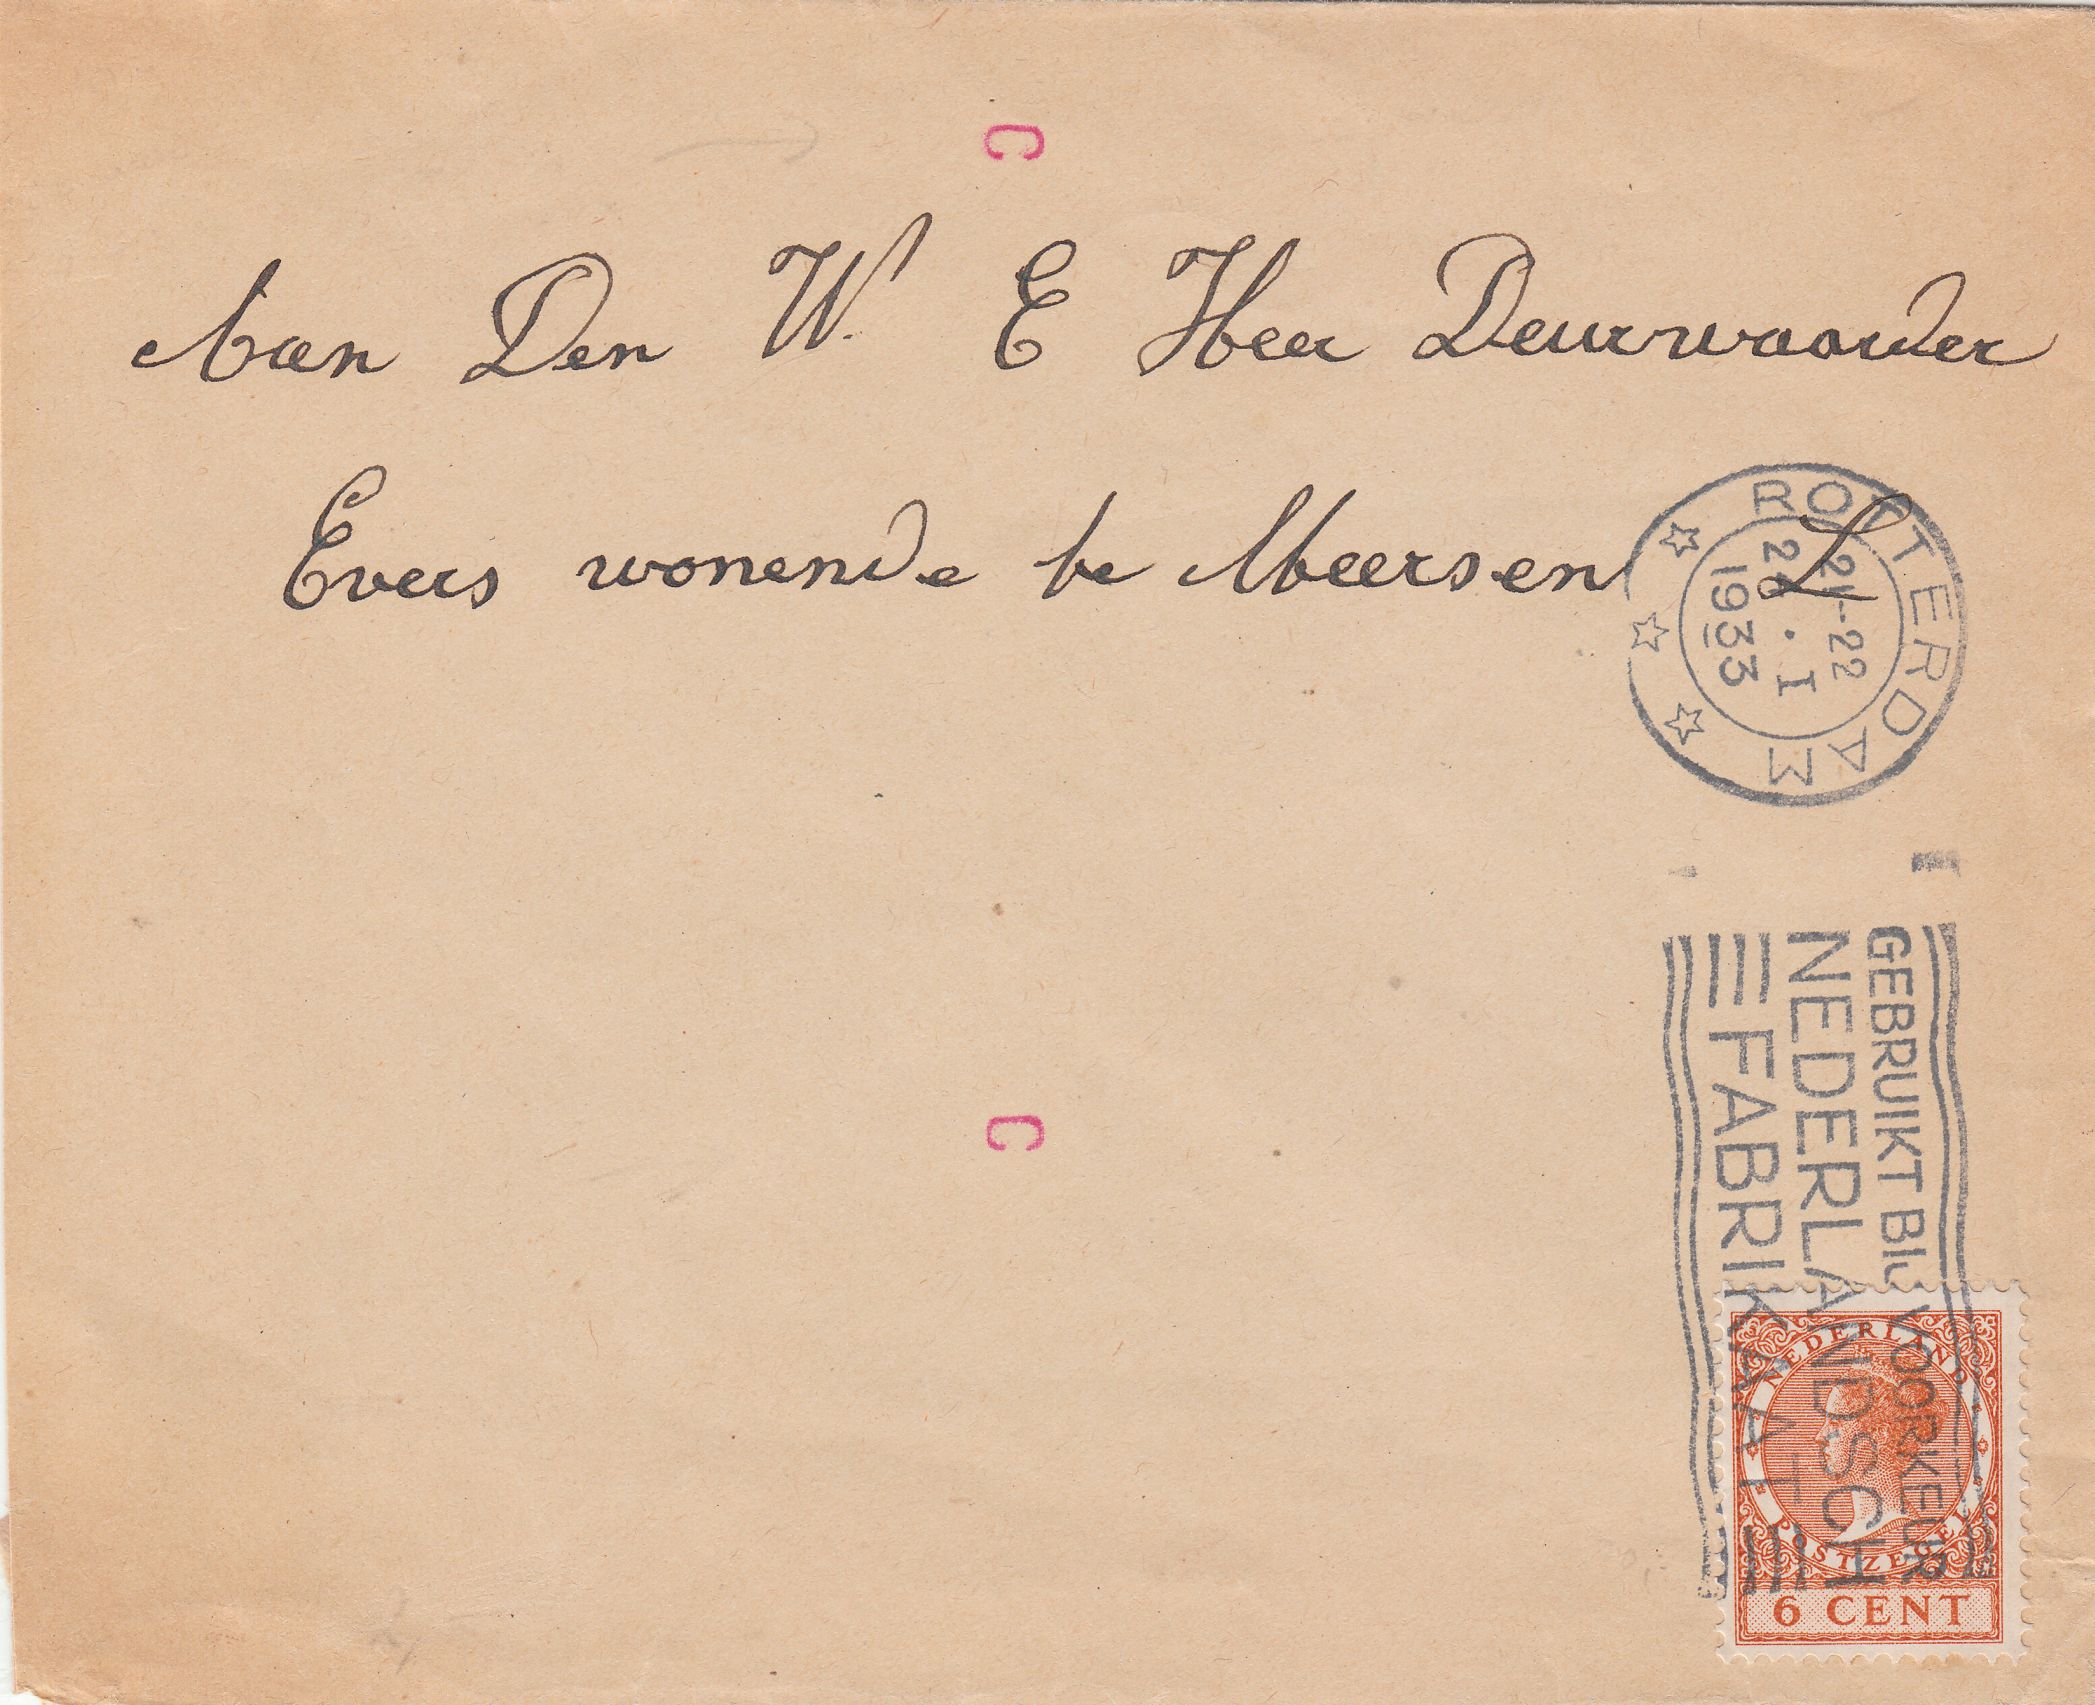 C
Aan Den W. E Heer Deurwaarder
Evers wonende te Meersen L
ROTTERDAM
21-22
24.I
1933
C
GEBRUIKT BIJ VOORKEUR
NEDERLANDSCH
FABRIKAAT
NEDERLAND
POSTZEGEL
6 CENT